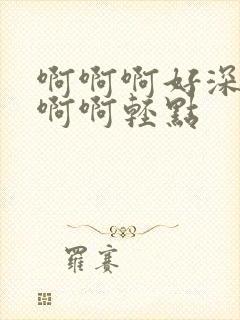 啊啊啊好深
啊啊輕點
羅賽